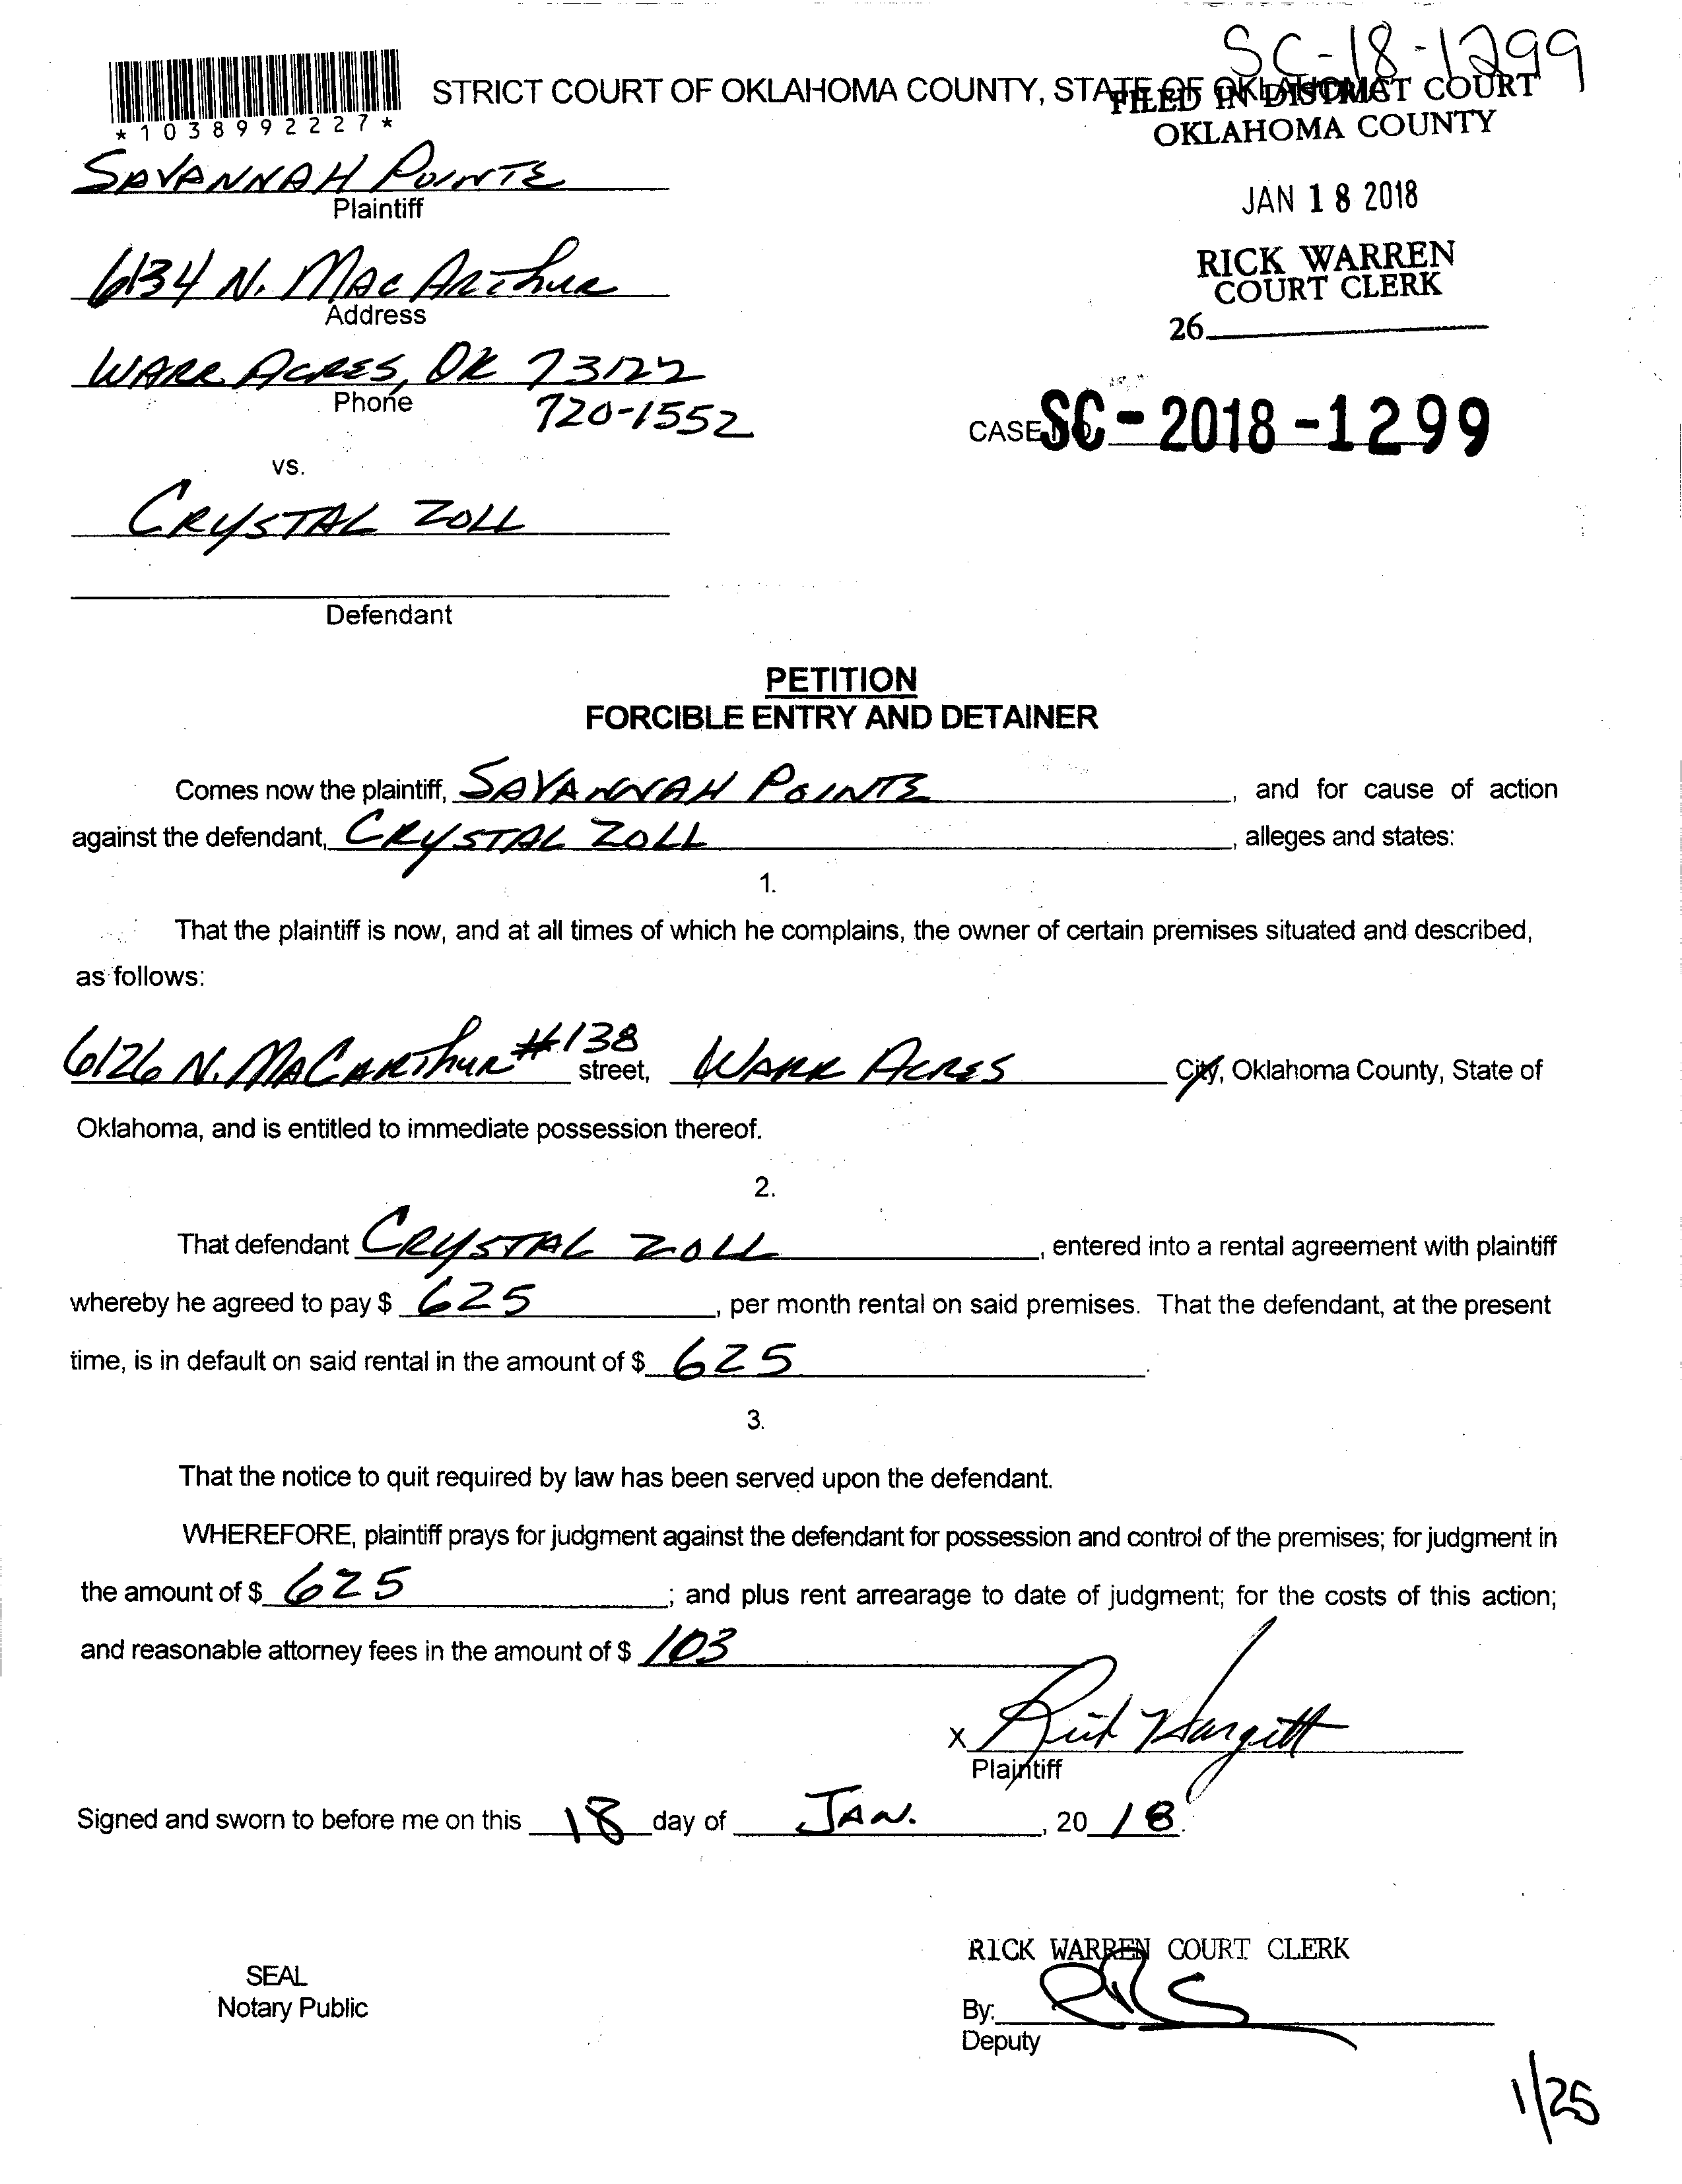 SC-18-1299
STRICT COURT OF OKLAHOMA COUNTY, STATE OF OKLAHOMA
FILED IN DISTRICT COURT
OKLAHOMA COUNTY
*1038992227*
SAVANNAH POINTE
Plaintiff
JAN 18 2018
6134 N. MACARTHUR
Address
RICK WARREN
COURT CLERK
26
WARR ACRES, OK 73122
Phone 720-1552
CASE NO. SC-2018-1299
vs.
CRYSTAL ZOLL
Defendant
PETITION
FORCIBLE ENTRY AND DETAINER
Comes now the plaintiff, SAVANNAH POINTE, and for cause of action
against the defendant, CRYSTAL ZOLL, alleges and states:
1.
That the plaintiff is now, and at all times of which he complains, the owner of certain premises situated and described,
as follows:
6126 N. MACARTHUR #138 street, WARR ACRES City, Oklahoma County, State of
Oklahoma, and is entitled to immediate possession thereof.
2.
That defendant CRYSTAL ZOLL, entered into a rental agreement with plaintiff
whereby he agreed to pay $ 625, per month rental on said premises. That the defendant, at the present
time, is in default on said rental in the amount of $ 625.
3.
That the notice to quit required by law has been served upon the defendant.
WHEREFORE, plaintiff prays for judgment against the defendant for possession and control of the premises; for judgment in
the amount of $ 625; and plus rent arrearage to date of judgment; for the costs of this action;
and reasonable attorney fees in the amount of $ 103
X Rick Hargett
Plaintiff
Signed and sworn to before me on this 18 day of JAN., 20 18.
RICK WARREN COURT CLERK
SEAL
Notary Public
By:
Deputy
1/25